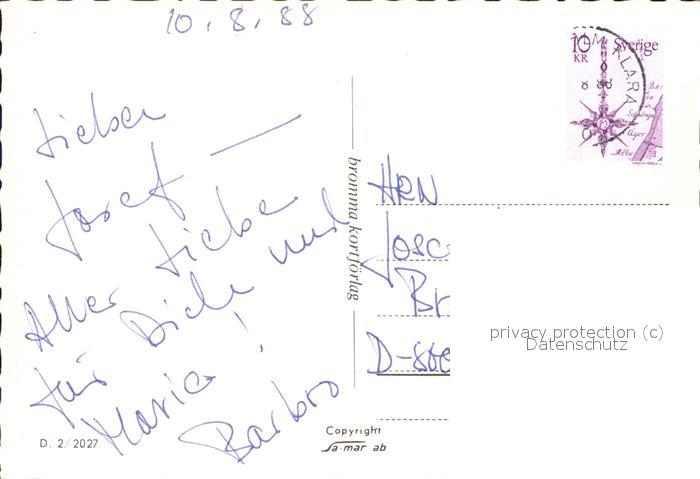 10.8.88
Lieber
Josef —
Alles Liebe
für Dich und
Maria!
Barbro
D. 2/2027
bromma kortförlag
Copyright
Sa-mar ab
10 KR
Sverige
KLARA
HRN
Josc
Br
D-800
privacy protection (c)
Datenschutz